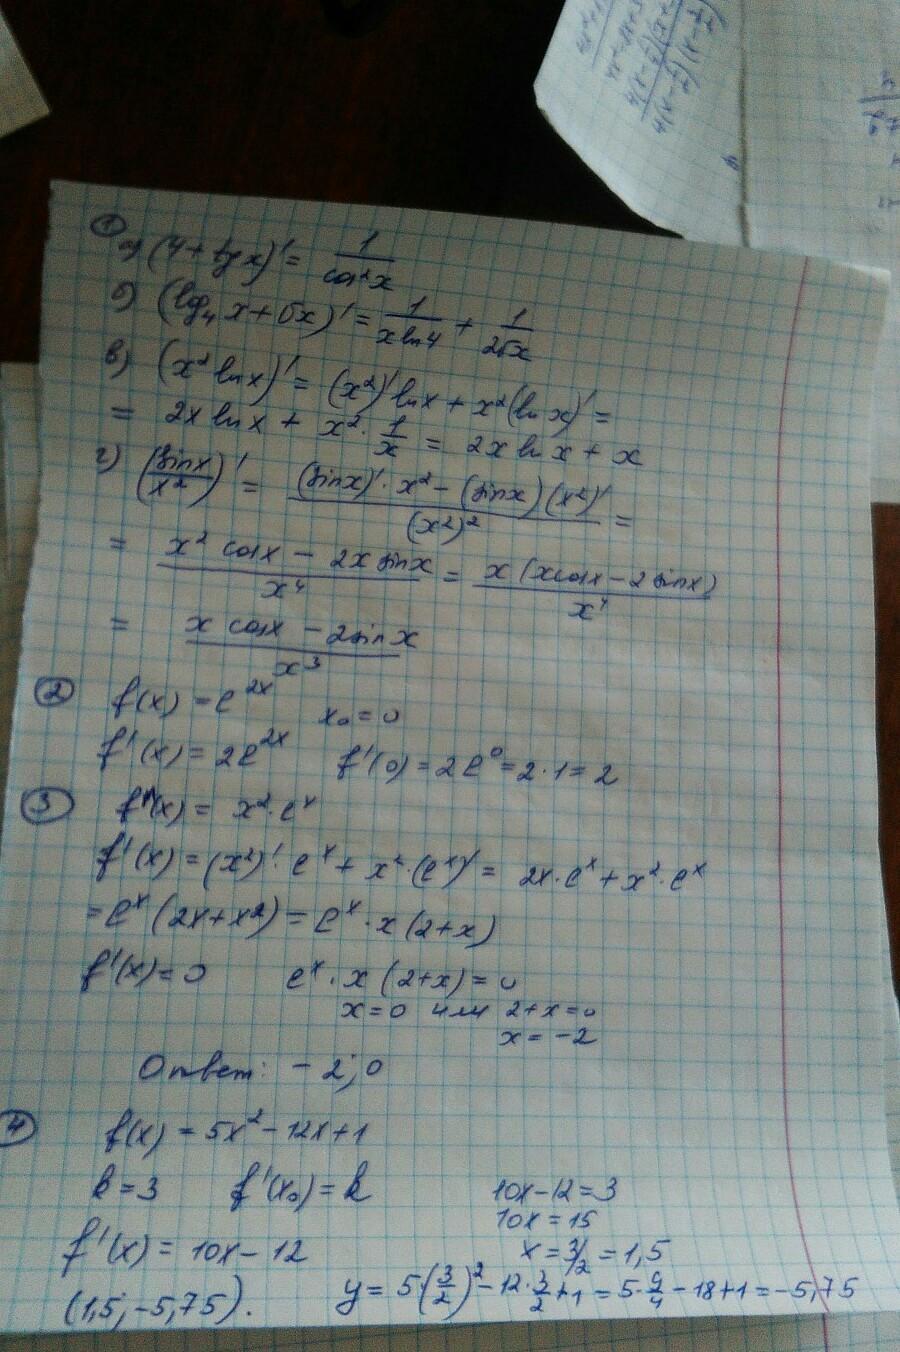 ① а) (4 + tg x)' = 1/cos²x
б) (log₄ x + √x)' = 1/(x ln 4) + 1/(2√x)
в) (x² ln x)' = (x²)' ln x + x² (ln x)' =
= 2x ln x + x² · 1/x = 2x ln x + x
г) (sin x/x²)' = ((sin x)' · x² − (sin x)(x²)')/(x²)² =
= (x² cos x − 2x sin x)/x⁴ = x(x cos x − 2 sin x)/x⁴
= (x cos x − 2 sin x)/x³
② f(x) = e^{2x} x₀ = 0
f'(x) = 2e^{2x} f'(0) = 2e⁰ = 2 · 1 = 2
③ f(x) = x² · eˣ
f'(x) = (x²)' · eˣ + x² · (eˣ)' = 2x · eˣ + x² · eˣ
= eˣ (2x + x²) = eˣ · x (2 + x)
f'(x) = 0 eˣ · x (2 + x) = 0
x = 0 или 2 + x = 0
x = −2
Ответ: −2; 0
④ f(x) = 5x² − 12x + 1
k = 3 f'(x₀) = k 10x − 12 = 3
10x = 15
f'(x) = 10x − 12 x = 3/2 = 1,5
(1,5; −5,75). y = 5 · (3/2)² − 12 · 3/2 + 1 = 5 · 9/4 − 18 + 1 = −5,75